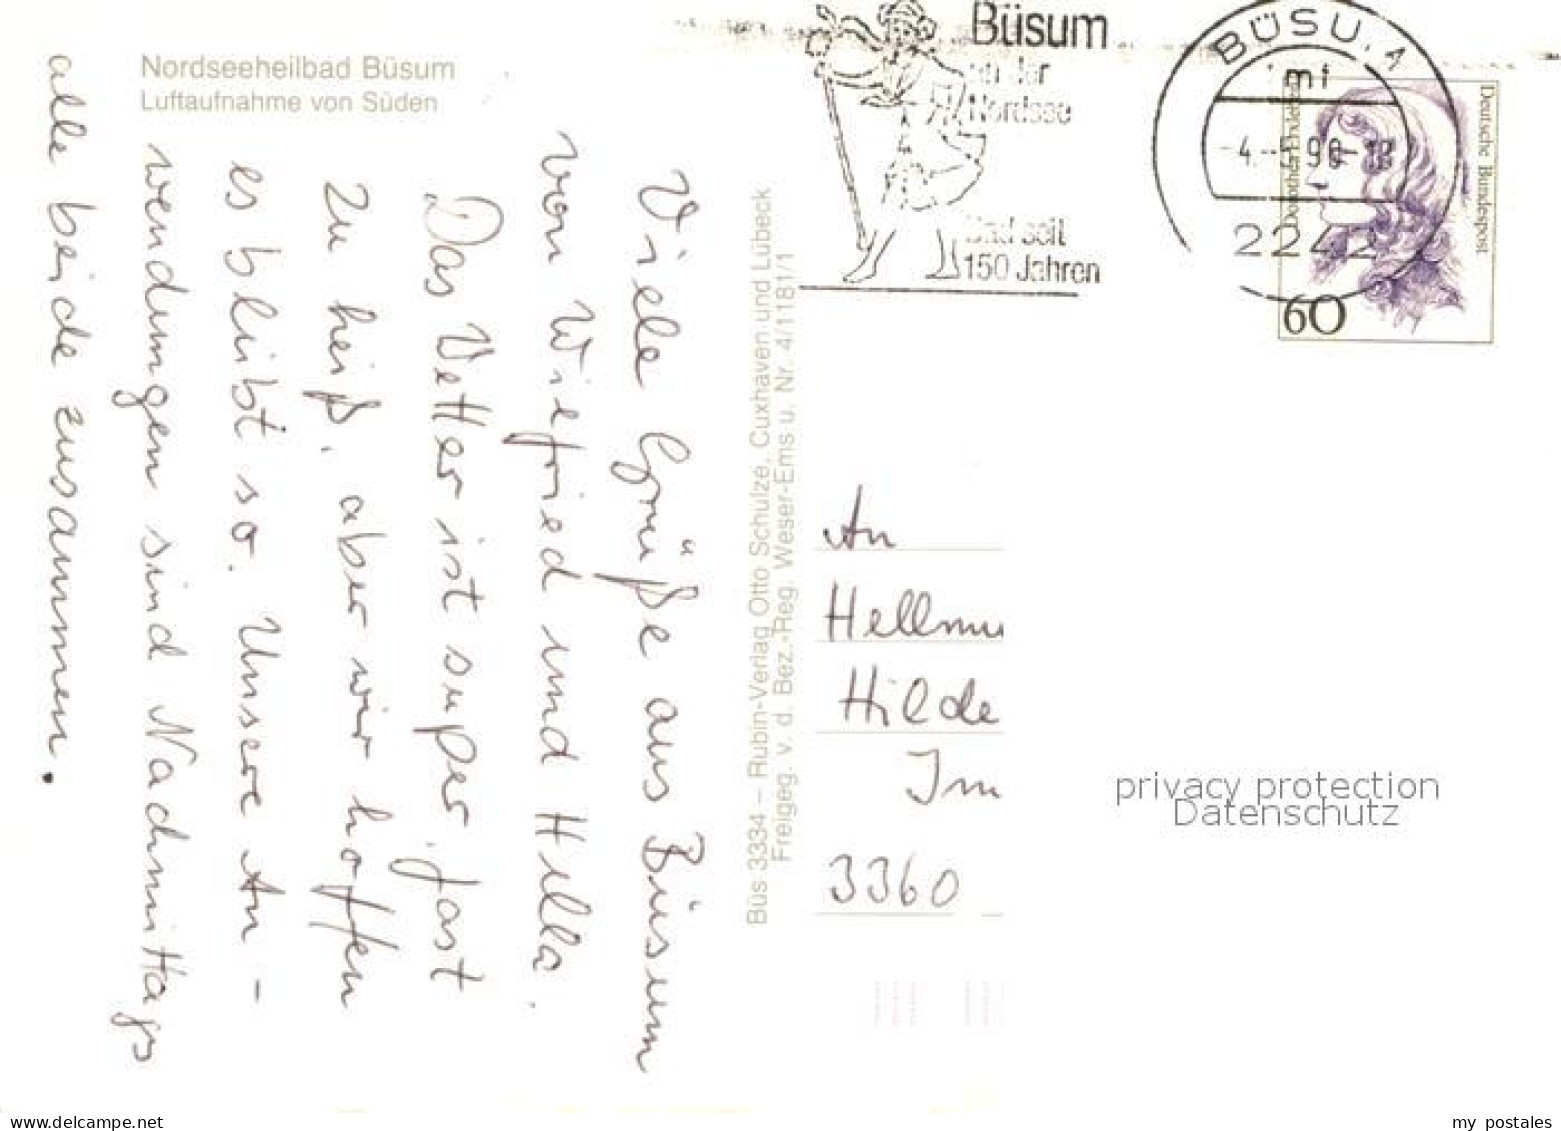 Nordseeheilbad Büsum
Luftaufnahme von Süden
Viele Grüße aus Büsum
von Wiefried und Hella.
Das Wetter ist super, fast
zu heiß, aber wir hoffen
es bleibt so. Unsere An-
wendungen sind Nachmittags
alle beide zusammen.
Büs 3334 – Rubin-Verlag Otto Schulze, Cuxhaven und Lübeck
Freigeg. v. d. Bez.-Reg. Weser-Ems u. Nr. 4/1181/1
Büsum
an der
Nordsee
Bad seit
150 Jahren
BÜSU
1
mf
-4.--5.90-18
2242
Deutsche Bundespost
Dorothea Erxleben
60
An
Hellmu
Hilde
Im
3360
privacy protection
Datenschutz
www.delcampe.net
my_postales